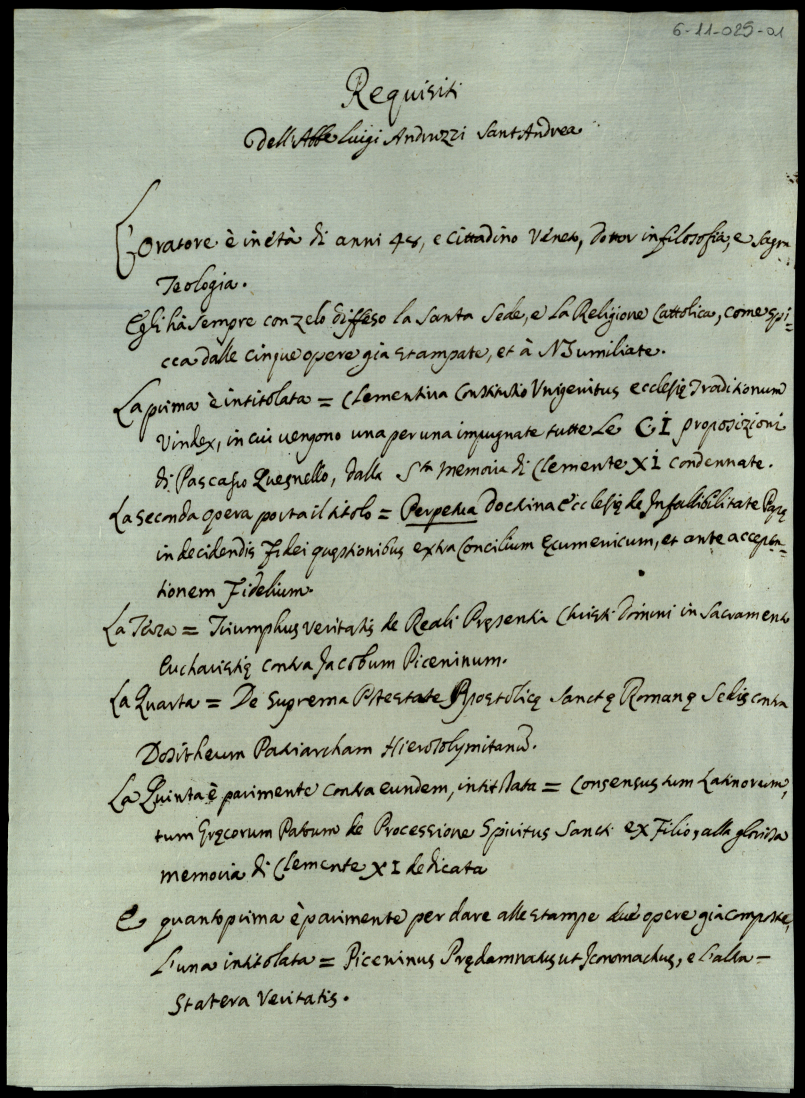 6-11-025-01
Requisiti
Dell'Abbe Luigi Andruzzi Sant'Andrea
L'Oratore è in età di anni 48, e Cittadino Veneto, Dottor in filosofia, e Sagra
Teologia.
Egli hà sempre con zelo diffeso la Santa Sede, e La Religione Cattolica, come spi=
cca dalle cinque opere gia stampate, et à NS umiliate.
La prima è intitolata = Clementina Constitutio Unigenitus ecclesię Traditionum
Vindex, in cui vengono una per una impugnate tutte Le CI proposizioni
di Pascasio Quesnello, dalla Sta memoria di Clemente XI condennate.
La seconda opera porta il titolo = Perpetua Doctrina Ecclesię de Infallibilitate Papę
in decidendis Fidei quęstionibus extra Concilium Ęcumenicum, et ante accepta=
tionem Fidelium.
La Terza = Triumphus veritatis de Reali Pręsentia Christi Domini in Sacramento
Eucharistię contra Jacobum Piceninum.
La Quarta = De Suprema Potestate Apostolicę Sanctę Romanę Sedis contra
Dositheum Patriarcham Hierosolymitanū.
La Quinta è parimente contra eundem, intitolata = Consensus tum Latinorum,
tum Gręcorum Patrum de Processione Spiritus Sancti ex Filio, alla gloriosa
memoria di Clemente XI dedicata
E quantoprima è parimente per dare alle stampe due opere gia composte,
L'una intitolata = Piceninus Prędamnatus ut Iconomachus, e L'altra =
Statera Veritatis.